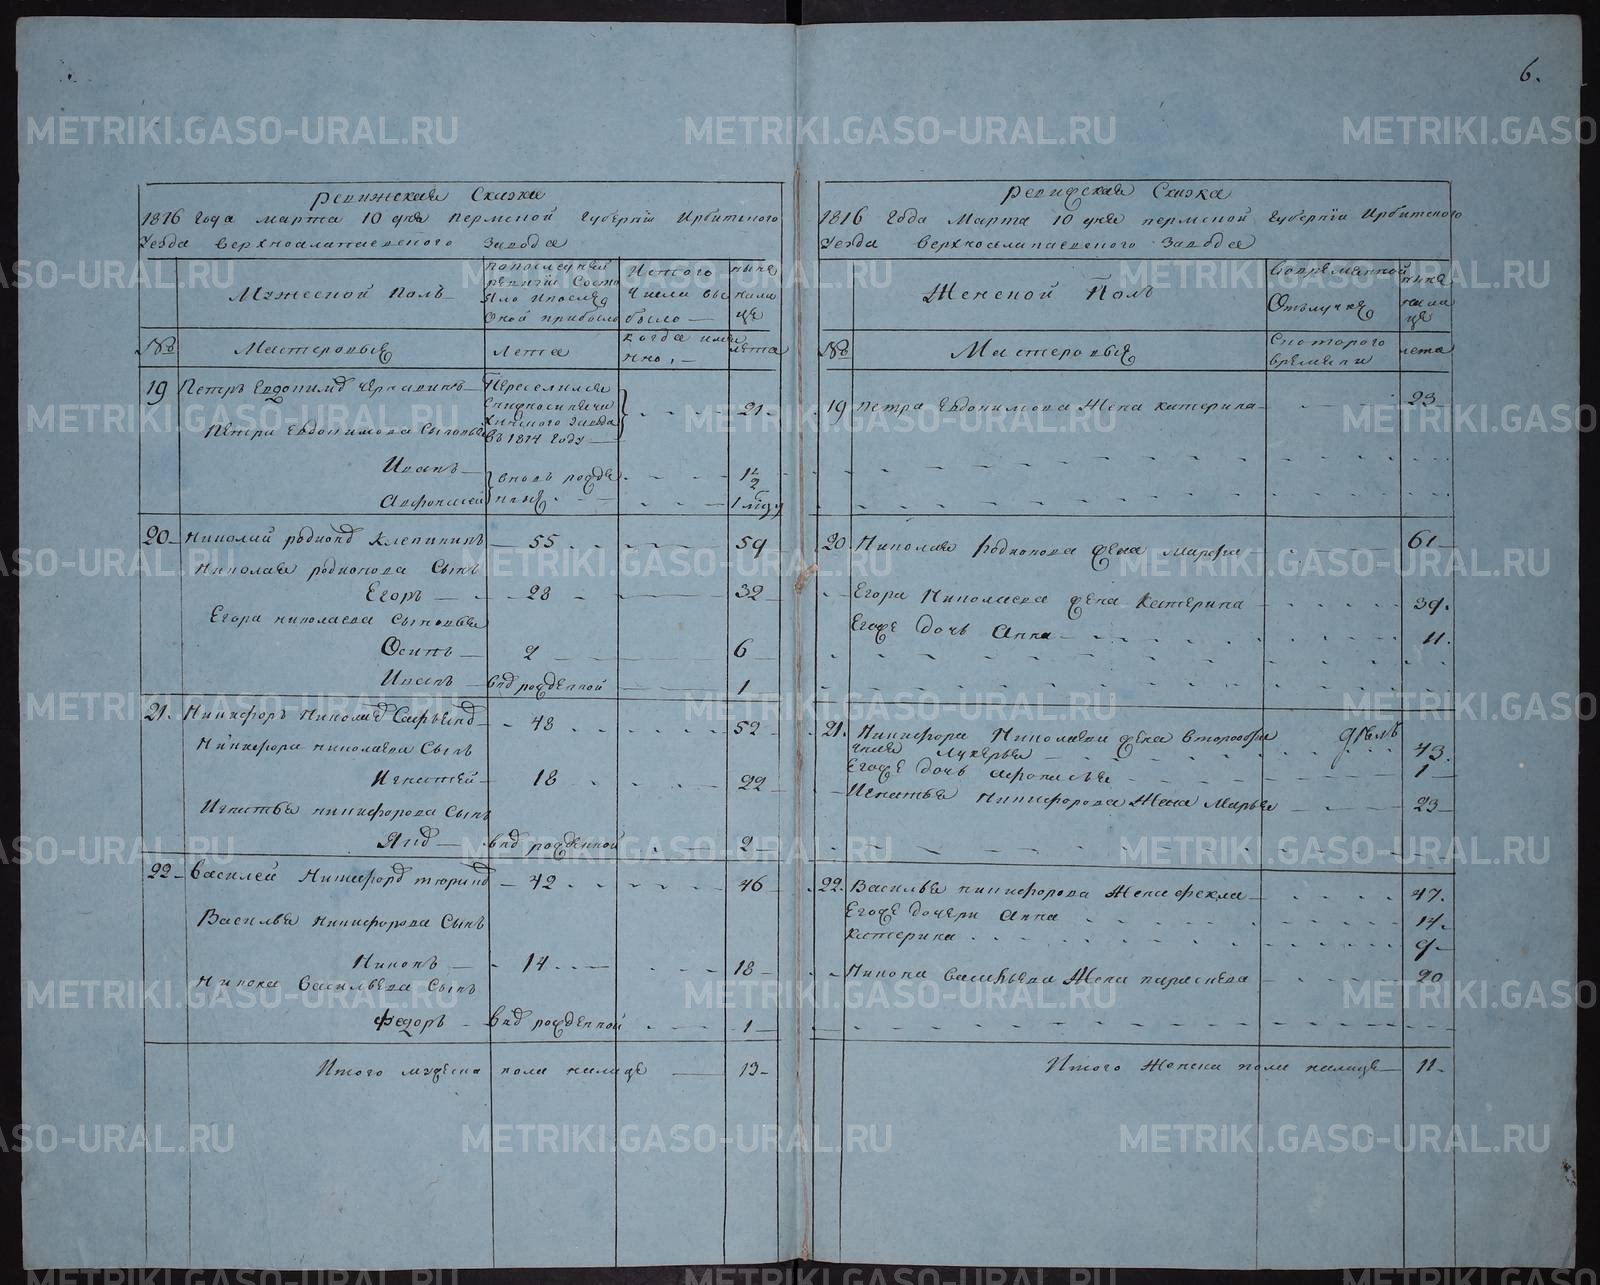 6.
Ревижская Сказка
1816 Года марта 10 дня пермской Губернїи Ирбитского
Уезда верхнеалапаевского Завода
Мужеской Полъ
попоследней
ревизїи Состо
яло ипослед
Оной прибыло
Исто­го
Числа вы
было
ныне
нали
це
№
Мастеровые
Лета
когда имян
но,
лета
19 Петръ Евдокимовъ
Переселился
в 1814 Году
21
Петра Евдокимова Сыновья
Иванъ
вновь рожде
1 1/2
Афонасей
ные
1 году
20 Николай родионовъ Клепининъ 55 59
Николая родионова Сынъ
Егоръ 28 32
Егора николаева Сыновья
Осипъ 2 6
Иванъ вновь рожденной 1
21. Никифоръ Николаевъ 48 52
Никифора николаева Сынъ
Игнатей 18 22
Игнатья никифорова Сынъ
Яковъ вновь рожденной 2
22 Василей Никифоровъ тюринъ 42 46
Василья Никифорова Сынъ
Никонъ 14 18
Никона Васильева Сынъ
Федоръ вновь рожденной 1
Итого мужска пола налице 13
Ревижская Сказка
1816 Года Марта 10 дня пермской Губернїи Ирбитского
Уезда верхнеалапаевского Завода
Женской Полъ
Вовременной
Отлучке
ныне
нали
це
№
Мастеровые
Скоторого
времени
лета
19 Петра Евдокимова Жена катерина 23
20 Николая Родионова жена Марфа 61
Егора Николаева жена Катерина 39.
Егоже Дочь Анна 11.
21. Никифора Николаева жена второбра
чная Лукерья 43.
Егоже дочь афонасья 1
Игнатья Никифорова Жена Марья 23
22. Василья никифорова Жена фекла 47.
Егоже дочери Анна 14.
Катерина 9
Никона васильева Жена параскева 20
Итого Женска пола налице 11
METRIKI.GASO-URAL.RU